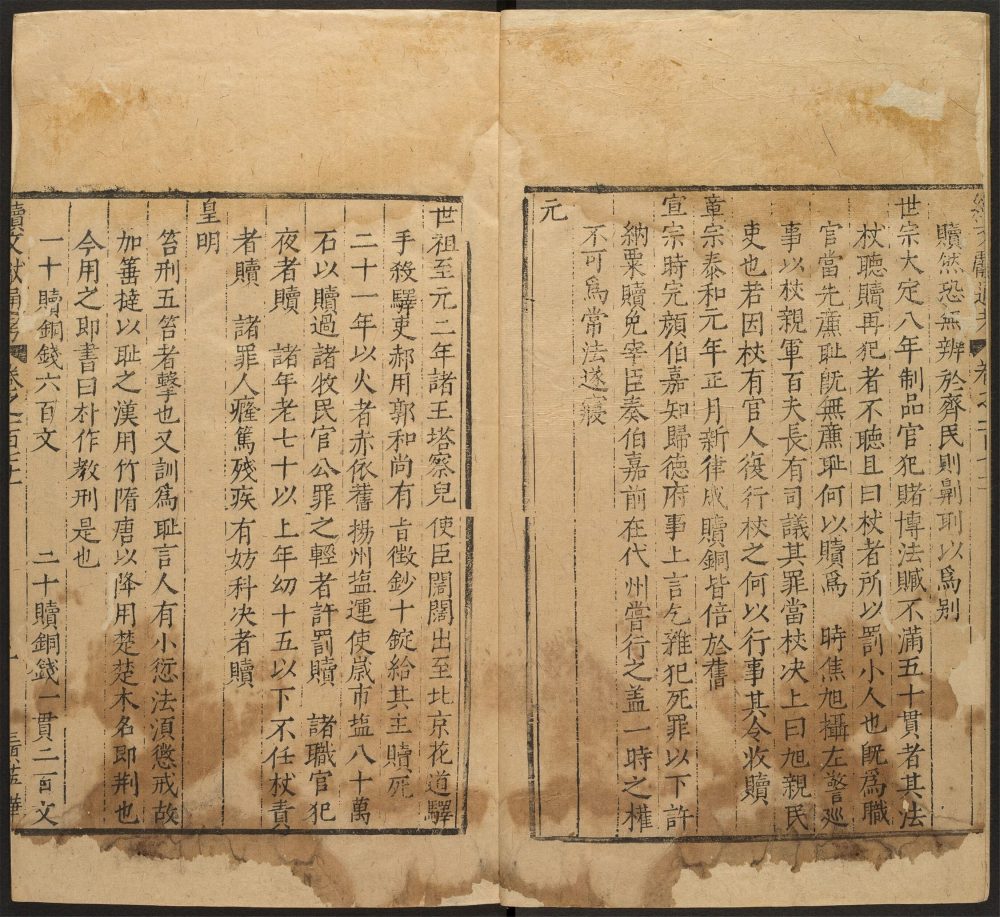 續文獻通考 卷之一百七十一
贖然恐無辨於齊民則劓刵以為别
世宗大定八年制品官犯賭博法贓不滿五十貫者其法
杖聽贖再犯者不聽且曰杖者所以罰小人也旣為職
官當先亷耻旣無亷耻何以贖爲 時焦旭攝左警廵
事以杖親軍百夫長有司議其罪當杖决上曰旭親民
吏也若因杖有官人復行杖之何以行事其令收贖
章宗泰和元年正月新律成贖銅皆倍於舊
宣宗時完顔伯嘉知歸德府事上言乞雜犯死罪以下許
納粟贖免宰臣奏伯嘉前在代州嘗行之盖一時之權
不可爲常法遂寢
元
世祖至元二年諸王塔察兒使臣闊闊出至北京花道驛
手殺驛吏郝用郭和尚有旨徵鈔十錠給其主贖死
二十一年以火者赤依舊揚州塩運使嵗市塩八十萬
石以贖過諸牧民官公罪之輕者許罰贖 諸職官犯
夜者贖 諸年老七十以上年幼十五以下不任杖責
者贖 諸罪人癃篤殘疾有妨科决者贖
皇明
笞刑五笞者擊也又訓爲耻言人有小愆法須懲戒故
加箠撻以耻之漢用竹隋唐以降用楚楚木名即荆也
今用之即書曰朴作教刑是也
一十贖銅錢六百文 二十贖銅錢一貫二百文
續文獻通考 卷之一百七十一